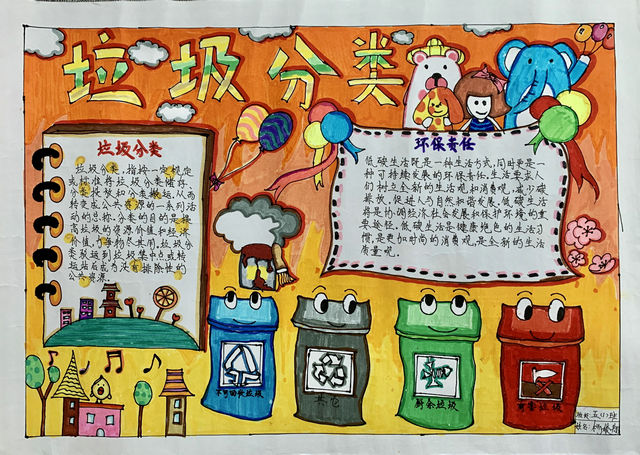 垃圾分类
垃圾分类
垃圾分类,指按一定规定
或标准将垃圾分类储存、
分类投放和分类搬运,从而
转变成公共资源的一系列活
动的总称。分类的目的是提
高垃圾的资源价值和经济
价值,力争物尽其用。垃圾分
类驳运到垃圾集中点或转
运站后成为没有排除性的
公共资源。
环保责任
低碳生活既是一种生活方式,同时更是一
种可持续发展的环保责任,生活要求人
们树立全新的生活观和消费观,减少碳
排放,促进人与自然和谐发展。低碳生活
将是协调经济社会发展和保护环境的重
要途径。低碳生活是健康绿色的生活习
惯,是更加时尚的消费观,是全新的生活
质量观。
不可回收垃圾
其它
厨余垃圾
有害垃圾
班级:五(1)班
姓名: